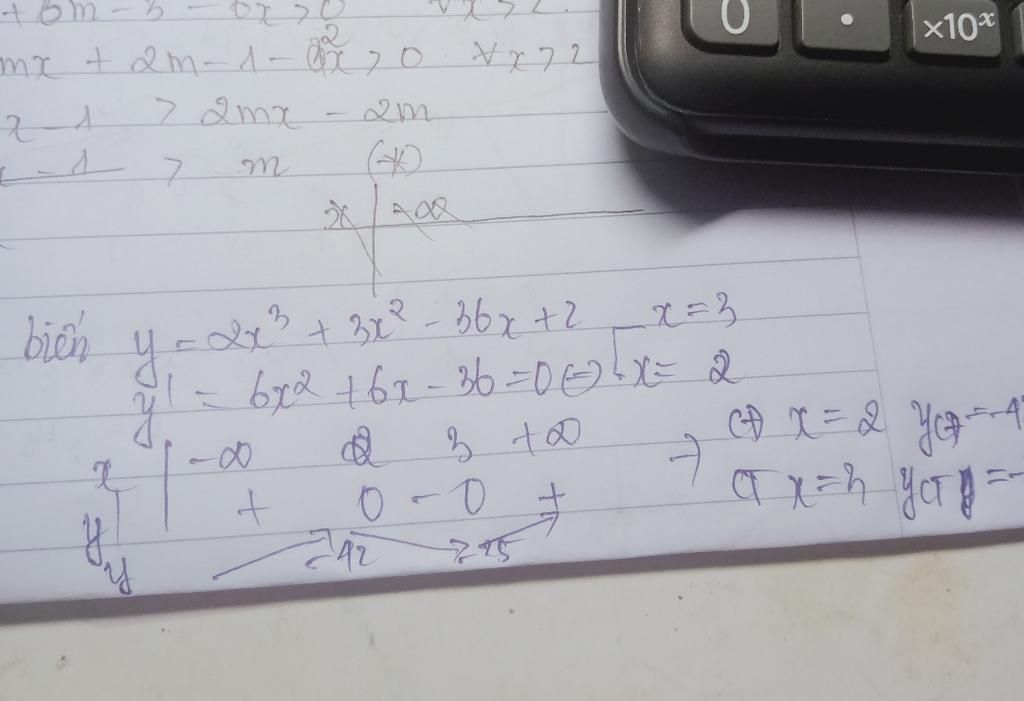 0 . ×10ˣ
+ 6m - 3 - 6x > 0 ∀x > 2.
mx + 2m - 1 - x² > 0 ∀x > 2
x - 1 > 2mx - 2m
- 1 > m (*)
x -∞
biến y = 2x³ + 3x² - 36x + 2 x = 3
y' = 6x² + 6x - 36 = 0 ⇔ x = 2
x -∞ 2 3 +∞
y' + 0 - 0 +
y -42 -25
→ CĐ x = 2 yCĐ = -4
CT x = 3 yCT = -